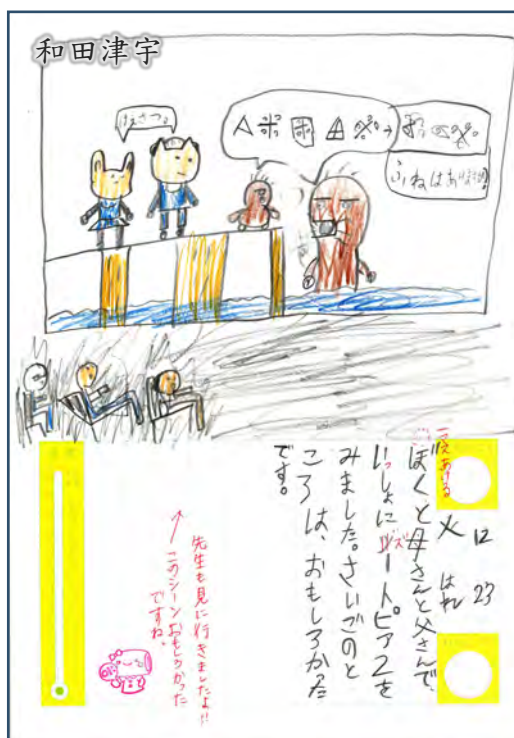 和田津宇
けえさつ。
ふねはあげ
火 12 23
はれ
ぼくと母さんと父さんで
いっしょにズートピア2を
みました。さいごのと
ころは、おもしろかった
です。
先生も見に行きましたよ!!
このシーンおもしろかった
ですね。